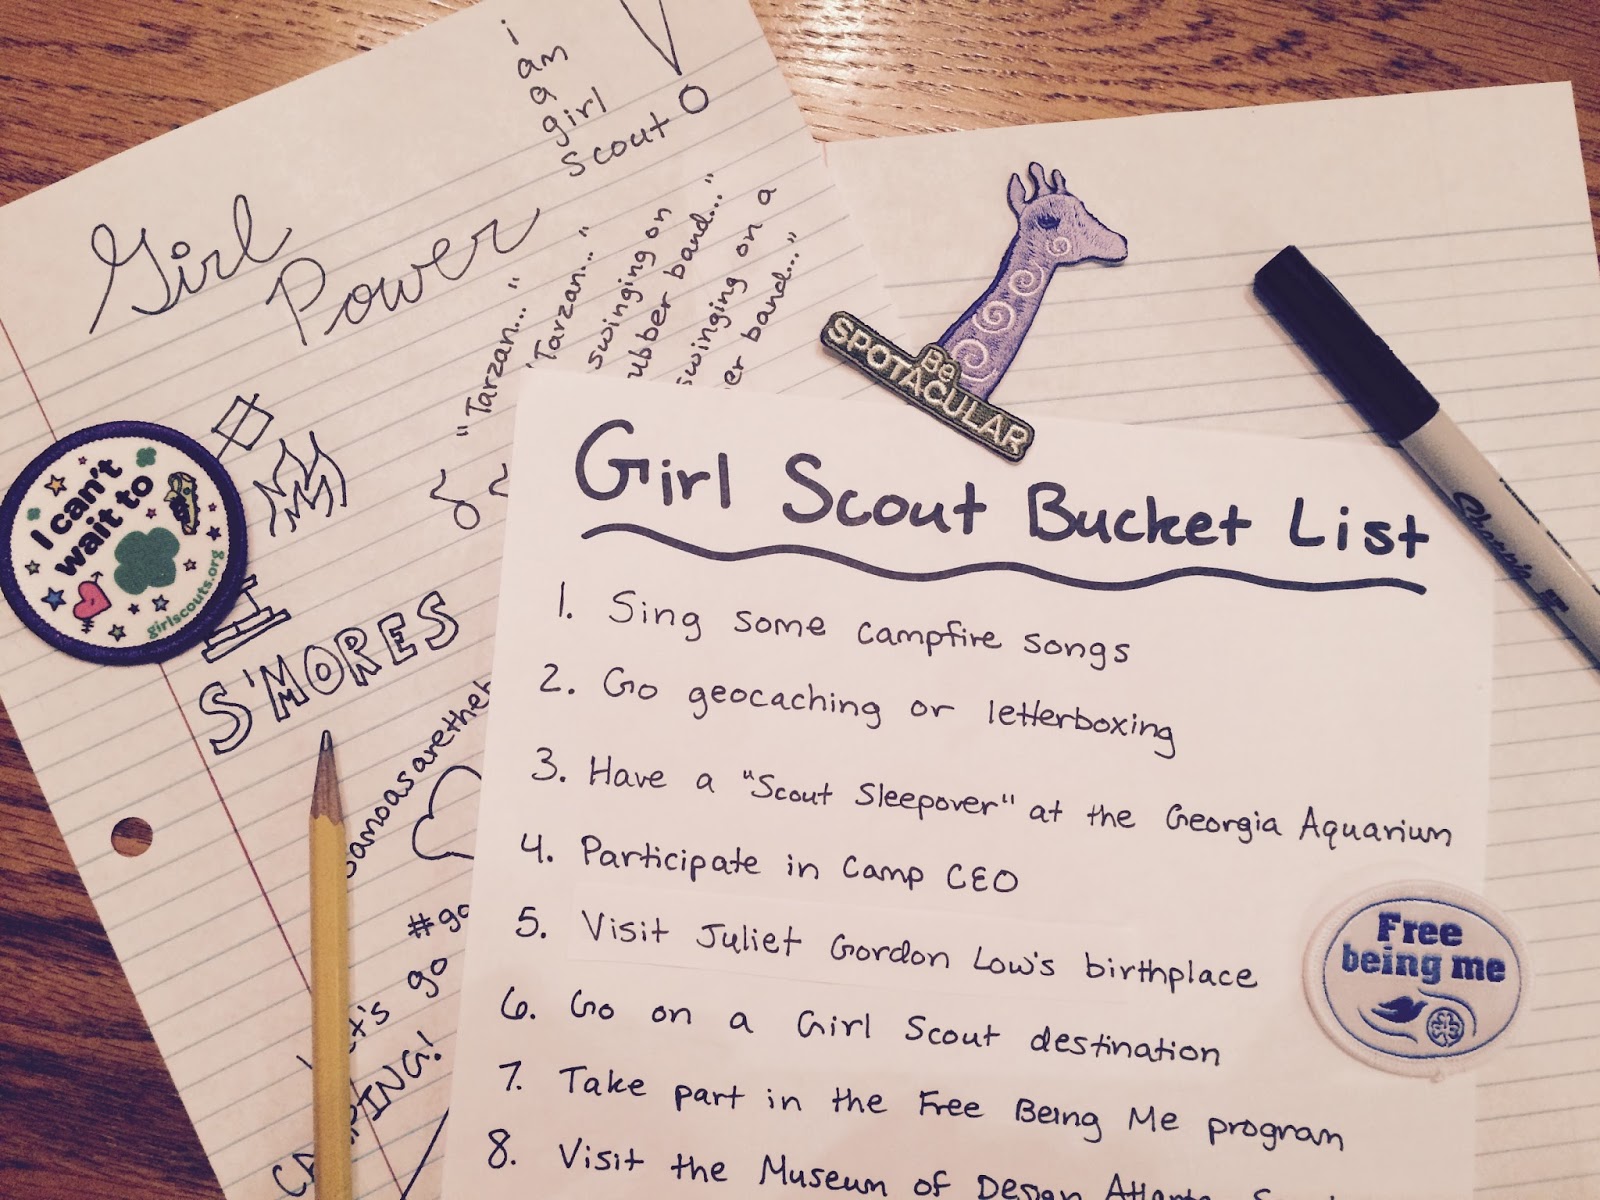 i
am
a
girl
scout
Girl
Power
"Tarzan..."
"Tarzan..."
swinging on
rubber band..."
swinging on a
er band..."
BE
SPOTACULAR
I can't
wait to
girlscouts.org
S'MORES
samoasaretheb
#go
Let's go
CAMPING!
Girl Scout Bucket List
1. Sing some campfire songs
2. Go geocaching or letterboxing
3. Have a "Scout Sleepover" at the Georgia Aquarium
4. Participate in Camp CEO
5. Visit Juliet Gordon Low's birthplace
6. Go on a Girl Scout destination
7. Take part in the Free Being Me program
8. Visit the Museum of Design Atlanta
Free
being me
Sharpie